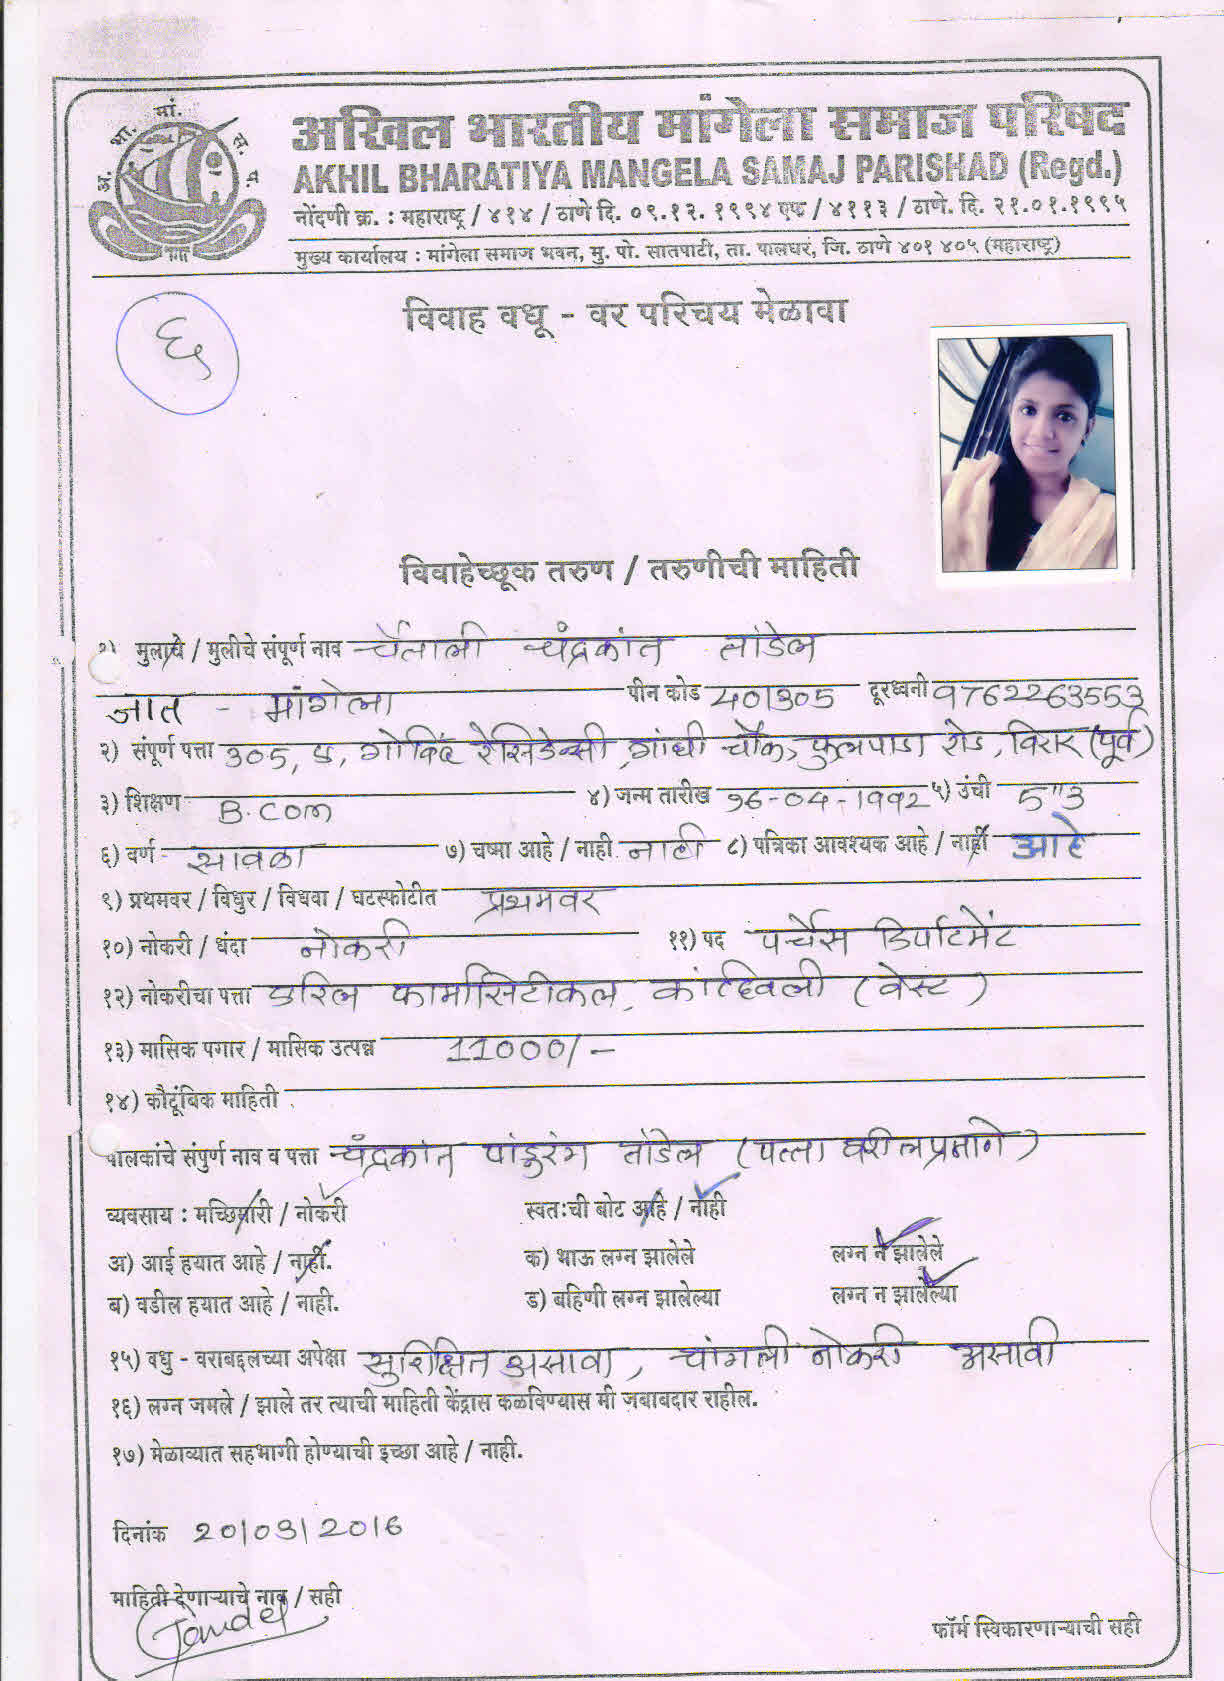 अ. भा. मां. स. प.
अखिल भारतीय मांगेला समाज परिषद
AKHIL BHARATIYA MANGELA SAMAJ PARISHAD (Regd.)
नोंदणी क्र. : महाराष्ट्र / ४१४ / ठाणे दि. ०९.१२. १९९४ एफ / ४११३ / ठाणे. दि. २१.०१.१९९५
मुख्य कार्यालय : मांगेला समाज भवन, मु. पो. सातपाटी, ता. पालघर, जि. ठाणे ४०१ ४०५ (महाराष्ट्र)
विवाह वधू - वर परिचय मेळावा
६
विवाहेच्छूक तरुण / तरुणीची माहिती
१) मुलाचे / मुलीचे संपूर्ण नाव चैताली चंद्रकांत तांडेल
जात - मांगेला पीन कोड 401305 दूरध्वनी 9762263553
२) संपूर्ण पत्ता 305, ड, गोविंद रेसिडेन्सी, गांधी चौक, फुलपाडा रोड, विरार (पूर्व)
३) शिक्षण B.com ४) जन्म तारीख 16-04-1992 ५) उंची 5"3
६) वर्ण सावळा ७) चष्मा आहे / नाही नाही ८) पत्रिका आवश्यक आहे / नाही आहे
९) प्रथमवर / विधुर / विधवा / घटस्फोटीत प्रथमवर
१०) नोकरी / धंदा नोकरी ११) पद पर्चेस डिपार्टमेंट
१२) नोकरीचा पत्ता फार्मासिटीकल, कांदिवली (वेस्ट)
१३) मासिक पगार / मासिक उत्पन्न 11000/-
१४) कौटूंबिक माहिती
पालकांचे संपुर्ण नाव व पत्ता चंद्रकांत पांडुरंग तांडेल (पत्ता वरीलप्रमाणे)
व्यवसाय : मच्छिमारी / नोकरी स्वतःची बोट आहे / नाही
अ) आई हयात आहे / नाही. क) भाऊ लग्न झालेले लग्न न झालेले
ब) वडील हयात आहे / नाही. ड) बहिणी लग्न झालेल्या लग्न न झालेल्या
१५) वधु - वराबद्दलच्या अपेक्षा सुशिक्षित असावा, चांगली नोकरी असावी
१६) लग्न जमले / झाले तर त्याची माहिती केंद्रास कळविण्यास मी जबाबदार राहील.
१७) मेळाव्यात सहभागी होण्याची इच्छा आहे / नाही.
दिनांक 20/03/2016
माहिती देणाऱ्याचे नाव / सही
Tandel
फॉर्म स्विकारणाऱ्याची सही